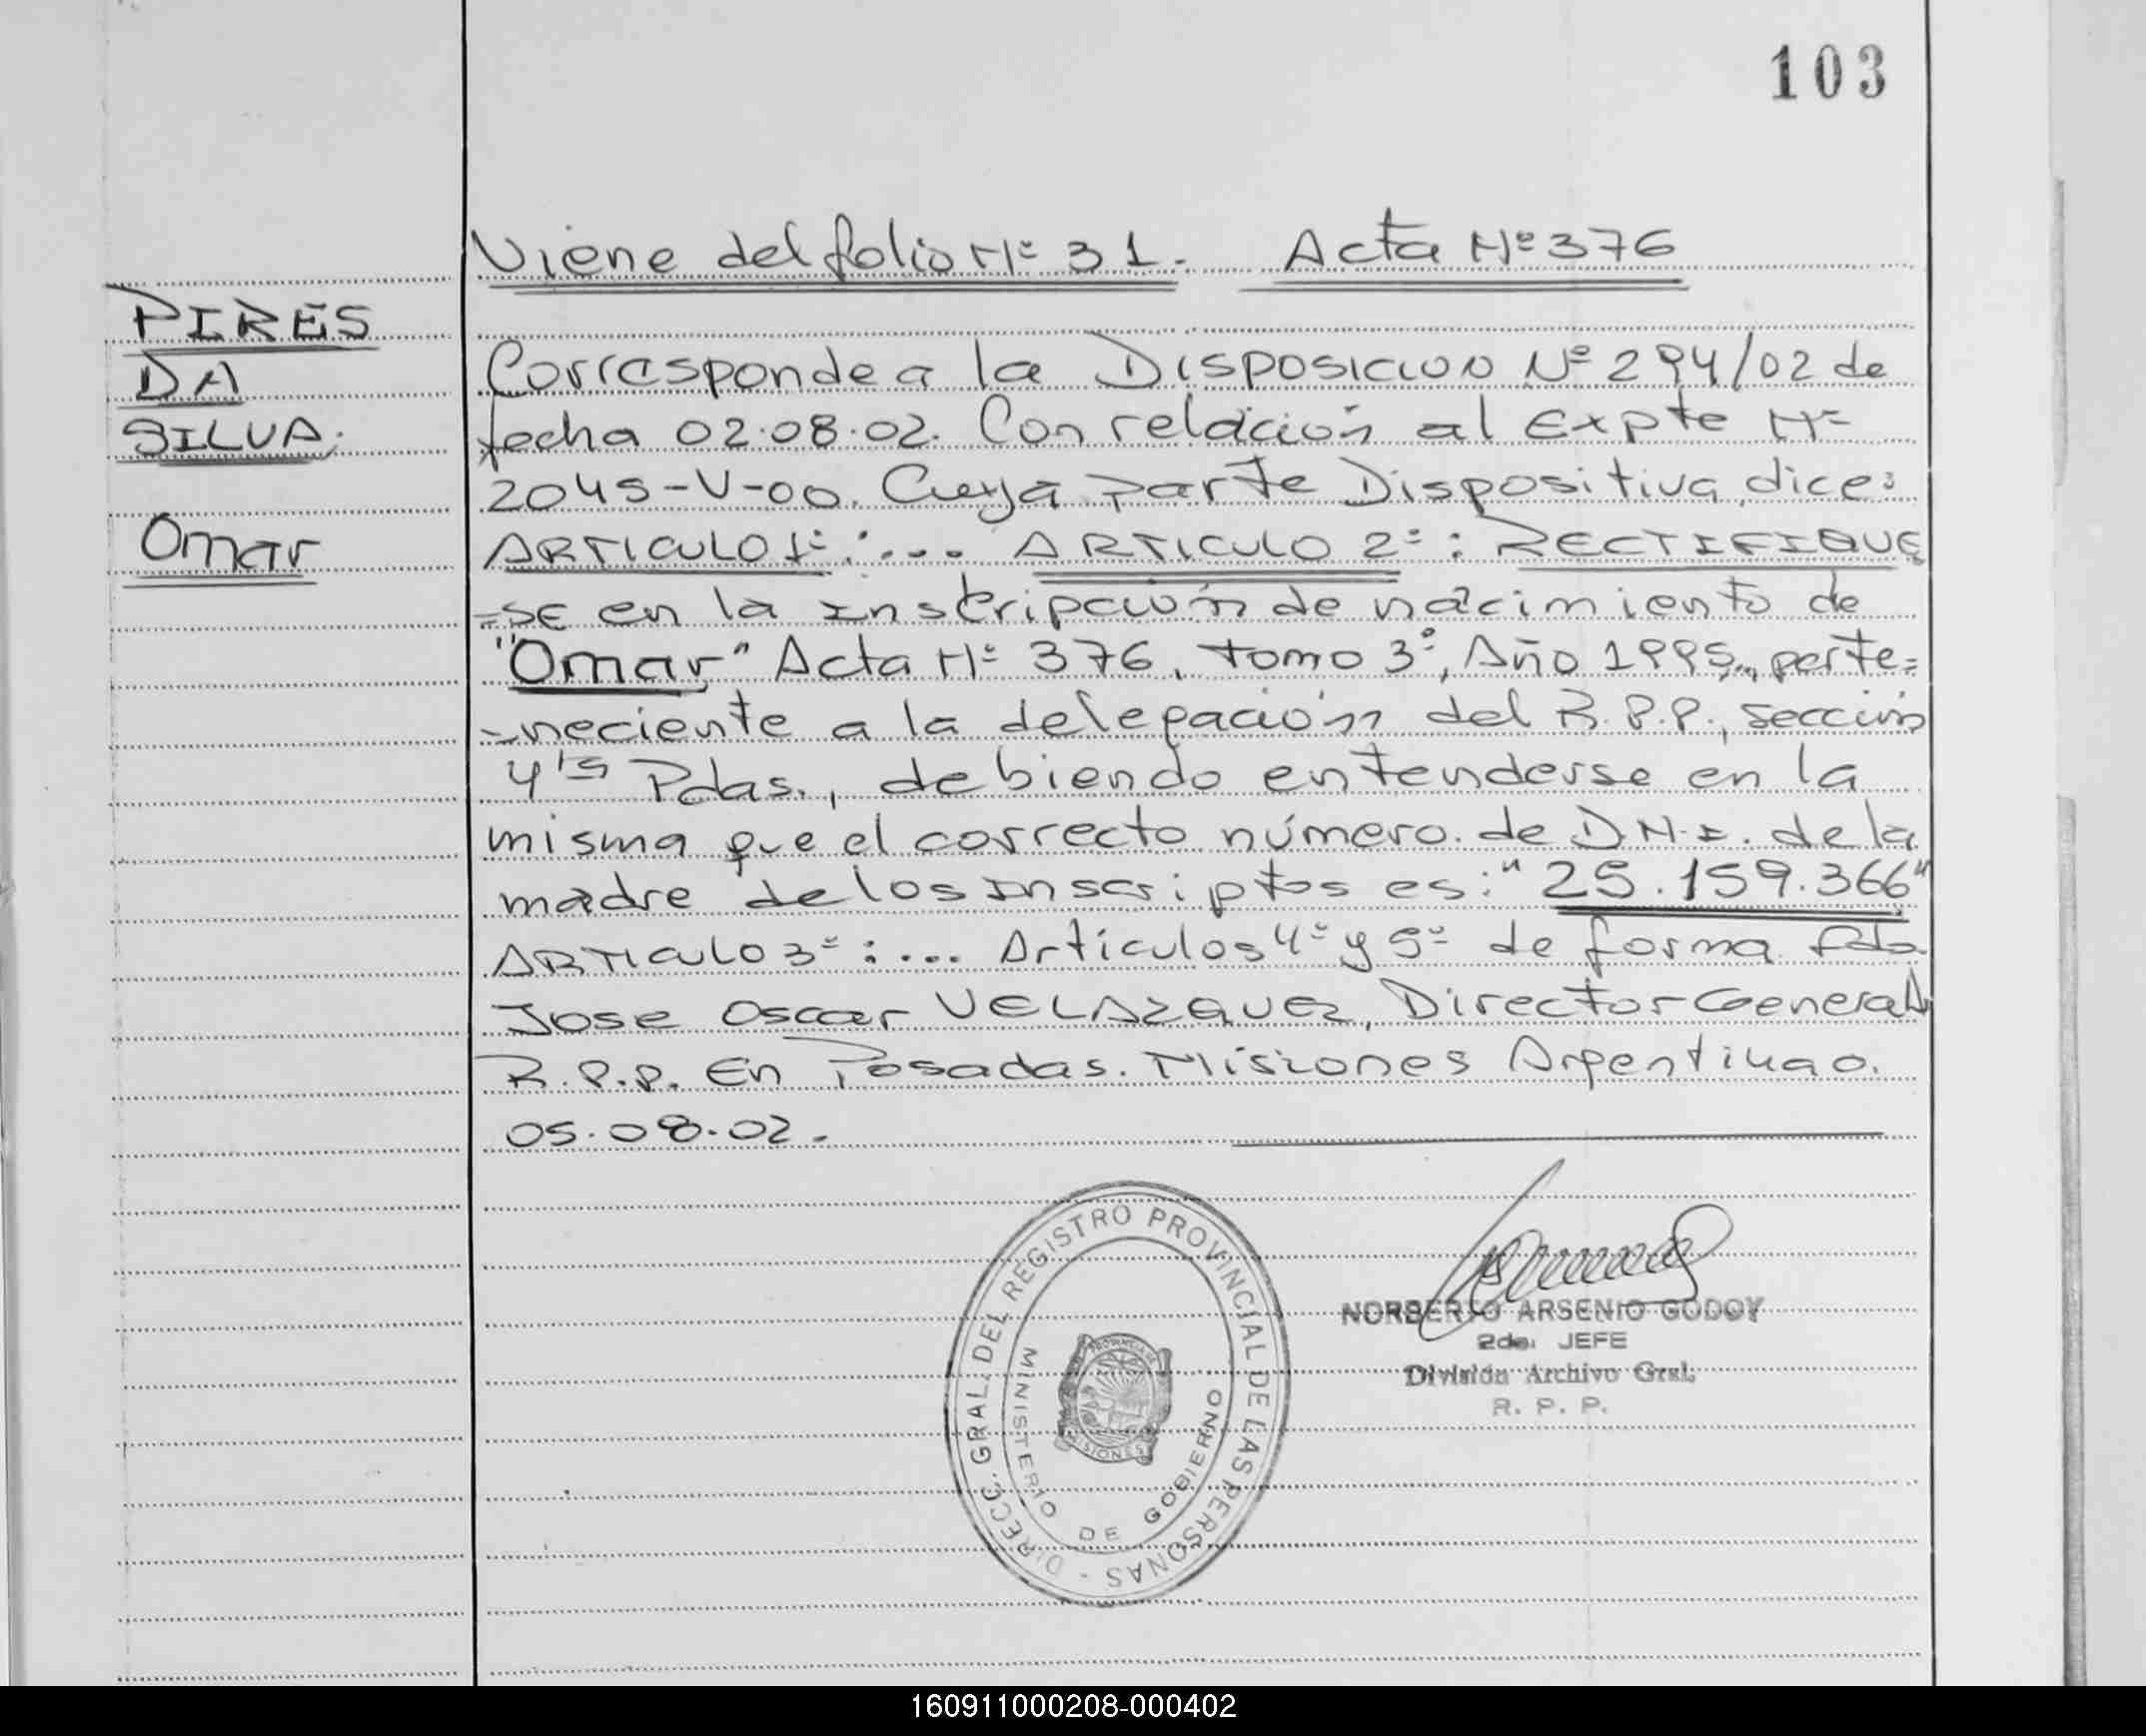 103
Viene del folio Nº 31. Acta Nº 376
PIRES
DA
SILVA.
Omar
Corresponde a la DISPOSICION Nº 294/02 de
fecha 02.08.02. Con relación al Expte Nº
2045-V-00. Cuya parte Dispositiva, dice:
ARTICULO 1º:... ARTICULO 2º: RECTIFIQUE
=SE en la Inscripción de nacimiento de
"Omar" Acta Nº 376, Tomo 3º, Año 1995., perte=
=neciente a la delegación del R.P.P., sección
4ta Pdas., debiendo entenderse en la
misma que el correcto número de D.N.I. de la
madre de los Inscriptos es: "25.159.366"
ARTICULO 3º:... Artículos 4º y 5º de forma Fdo.
Jose Oscar VELAZQUEZ, Director General
R.P.P. En Posadas. Misiones Argentina a.
05.08.02.
DIRECC. GRAL. DEL REGISTRO PROVINCIAL DE LAS PERSONAS -
MINISTERIO DE GOBIERNO
PROVINCIA DE
MISIONES
NORBERTO ARSENIO GODOY
2do. JEFE
División Archivo Gral.
R. P. P.
160911000208-000402